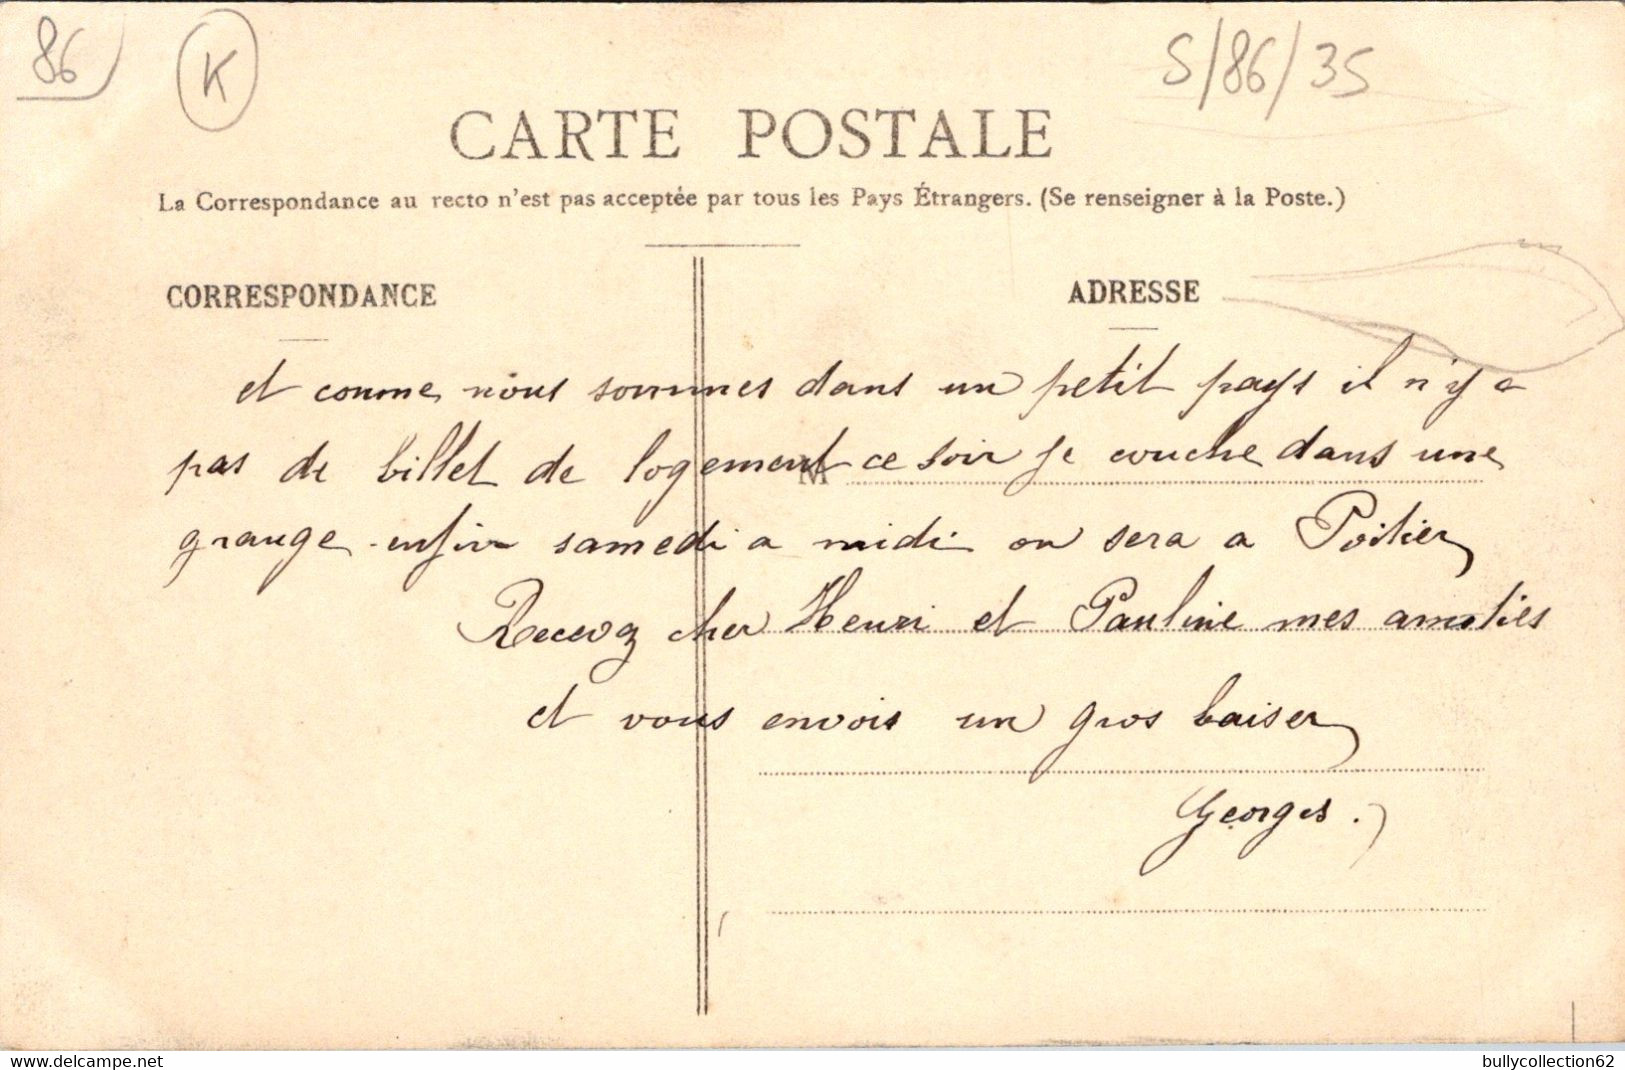 86
K
S/86/35
CARTE POSTALE
La Correspondance au recto n'est pas acceptée par tous les Pays Étrangers. (Se renseigner à la Poste.)
CORRESPONDANCE
ADRESSE
et comme nous sommes dans un petit pays il n'y a
pas de billet de logement ce soir je couche dans une
M
grange enfin samedi a midi on sera a Poitier
Recevez cher Henri et Pauline mes amitiés
et vous envois un gros baiser
Georges.
www.delcampe.net
bullycollection62